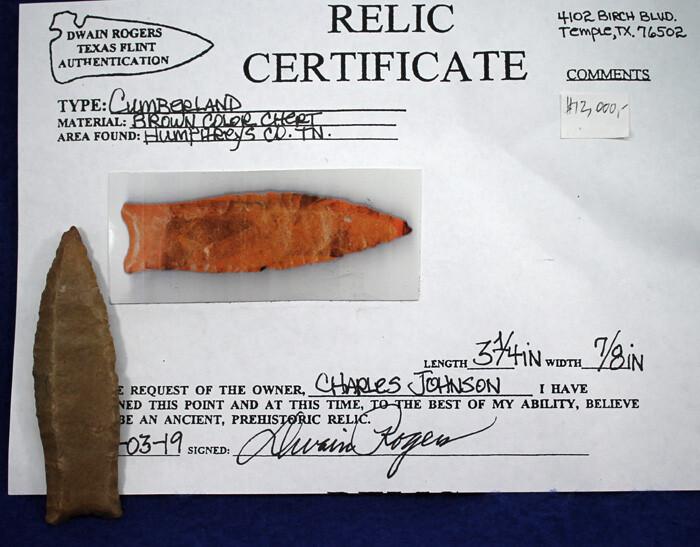 DWAIN ROGERS
TEXAS FLINT
AUTHENTICATION
RELIC
CERTIFICATE
4102 BIRCH BLVD.
Temple, TX. 76502
COMMENTS
$12,000,-
TYPE: CUMBERLAND
MATERIAL: BROWN COLOR CHERT
AREA FOUND: HUMPHREYS CO. TN.
LENGTH 3 1/4 IN WIDTH 7/8 IN
E REQUEST OF THE OWNER, CHARLES JOHNSON I HAVE
NED THIS POINT AND AT THIS TIME, TO THE BEST OF MY ABILITY, BELIEVE
BE AN ANCIENT, PREHISTORIC RELIC.
-03-19 SIGNED: Dwain Rogers